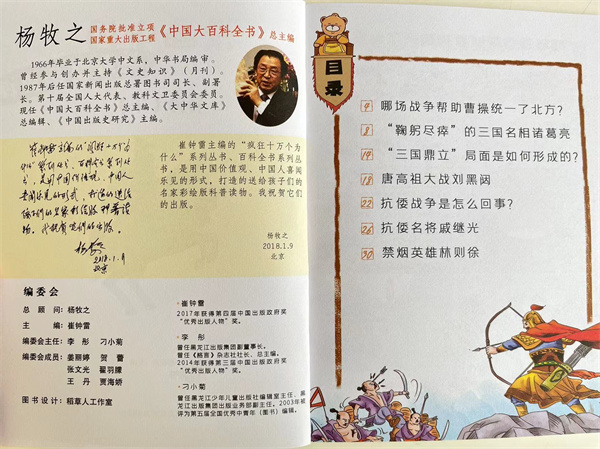 杨牧之 国务院批准立项 《中国大百科全书》总主编
国家重大出版工程
1966年毕业于北京大学中文系,中华书局编审。
曾经参与创办并主持《文史知识》(月刊)。
1987年后任国家新闻出版总署图书司司长、副署
长。第十届全国人大代表、教科文卫委员会委员。
现任《中国大百科全书》总主编、《大中华文库》
总编辑、《中国出版史研究》主编。
崔钟雷主编的“疯狂十万个为
什么”系列丛书、百科全书系列丛
书,是用中国价值观、中国人喜闻
乐见的形式,打造的送给孩子们的
名家彩绘版科普读物。我祝贺它们
的出版。
杨牧之
2018.1.9
北京
杨牧之
2018.1.9
北京
编委会
总顾问:杨牧之
主编:崔钟雷
编委会主任:李彤 刁小菊
编委会成员:姜丽婷 贺蕾
张文光 翟羽朦
王丹 贾海娇
图书设计:稻草人工作室
·崔钟雷
2017年获得第四届中国出版政府奖
“优秀出版人物”奖。
·李彤
曾任黑龙江出版集团副董事长。
曾任《格言》杂志社社长、总主编。
2014年获得第三届中国出版政府奖
“优秀出版人物”奖。
·刁小菊
曾任黑龙江少年儿童出版社编辑室主任、黑
龙江出版集团出版业务部副主任。2003年被
评为第五届全国优秀中青年(图书)编辑。
目录
4 哪场战争帮助曹操统一了北方?
8 “鞠躬尽瘁”的三国名相诸葛亮
14 “三国鼎立”局面是如何形成的?
18 唐高祖大战刘黑闼
22 抗倭战争是怎么回事?
26 抗倭名将戚继光
30 禁烟英雄林则徐